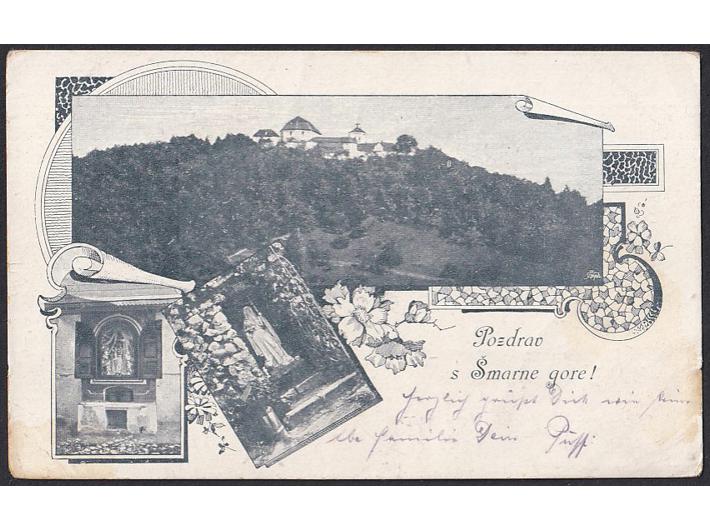 Pozdrav
s Šmarne gore!
Herzlich grüßt Dich wie Deine
lbe Familie Dein